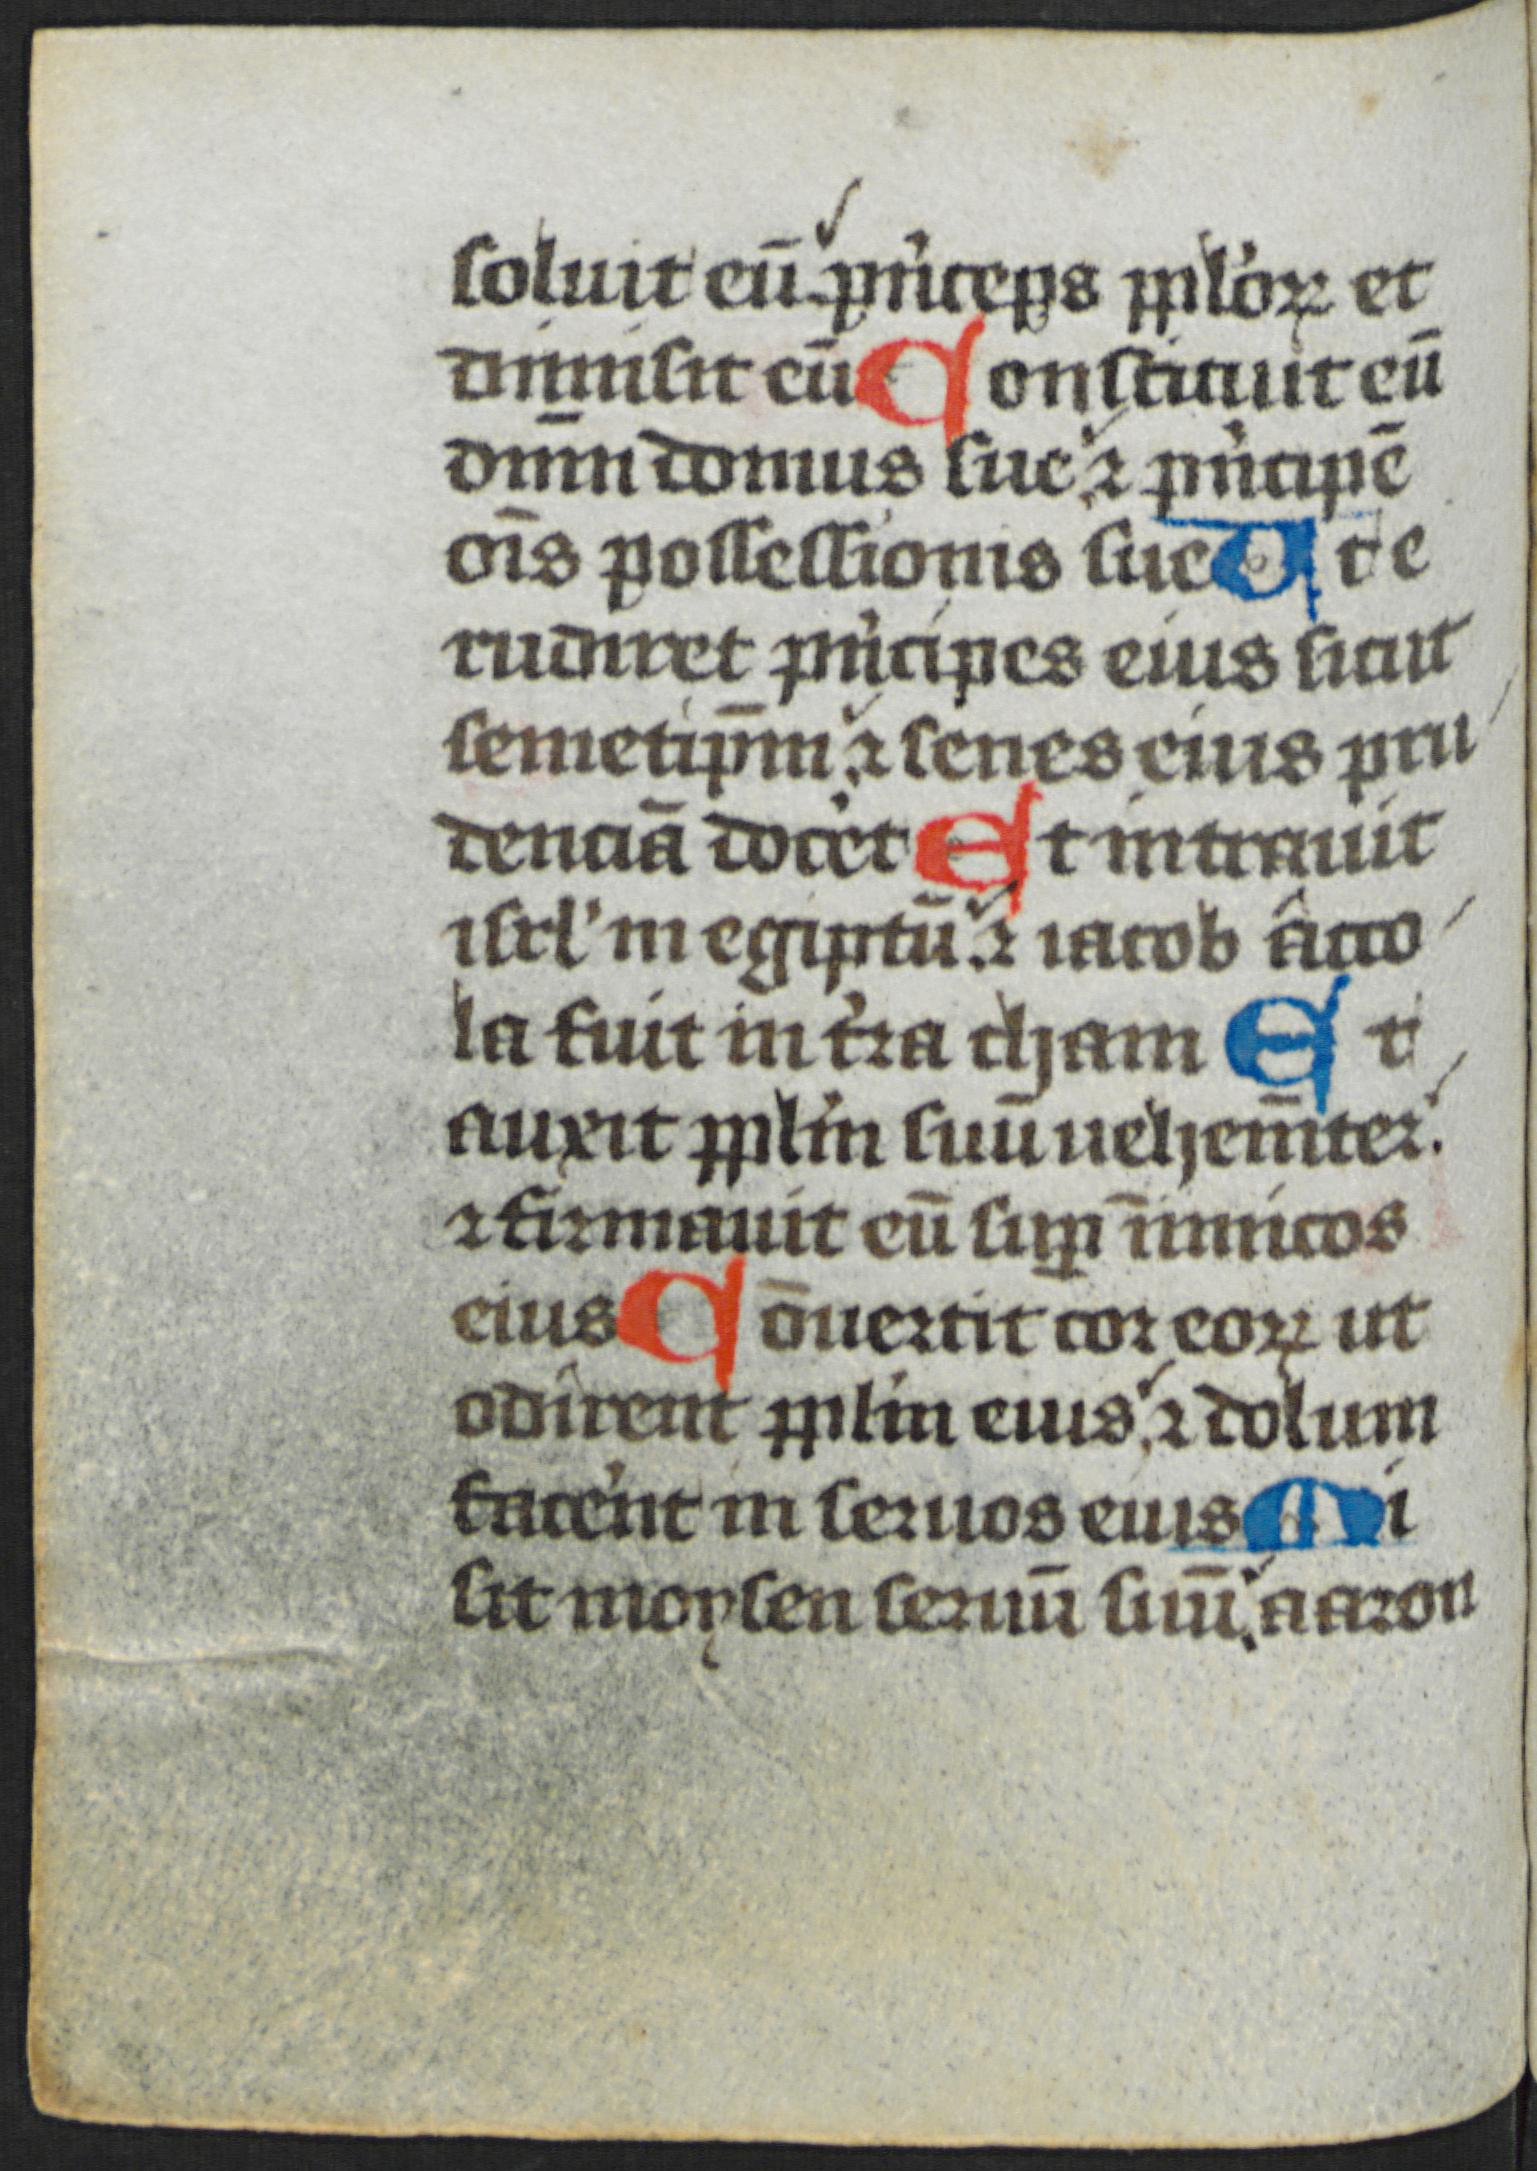 soluit eū p̄nceps pp̄l'oꝝ et
dimisit eū Constituit eū
dn̄m domus sue ⁊ p̄ncipē
oīs possessionis sue Vt e
rudiret p̄ncipes eius sicut
semetip̄m ⁊ senes eius pru
denciā doc'et Et intrauit
isrl' in egiptū .⁊ iacob acco
la fuit in t'ra cham Et
auxit pp̄lm suū uehem̄ter.
⁊ firmauit eū suꝑ īnimicos
eius Cōuertit cor eoꝝ ut
odirent pp̄lm eius ⁊ dolum
fac'ent in seruos eius Mi
sit moysen seruū suū aaron